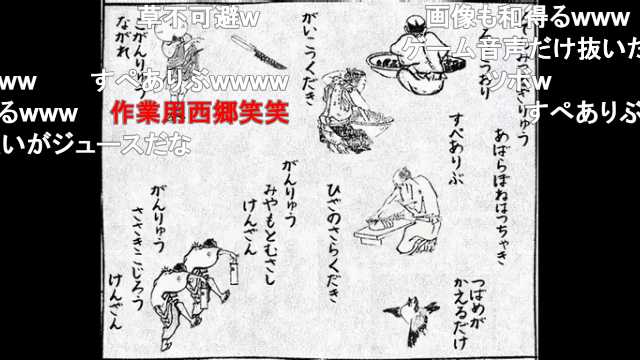 草不可避w
画像も和得るwww
ゲーム音声だけ抜いた
ww
すぺありぶwwww
ツボw
るwww
作業用西郷笑笑
すぺありぶ
いがジュースだな
あばらぼねはっちゃき
すぺありぶ
がいこうくだき
こがんりゅう
ながれ
つばめが
かえるだけ
ひざのさらくだき
がんりゅう
みやもとむさし
けんざん
がんりゅう
ささきこじろう
けんざん